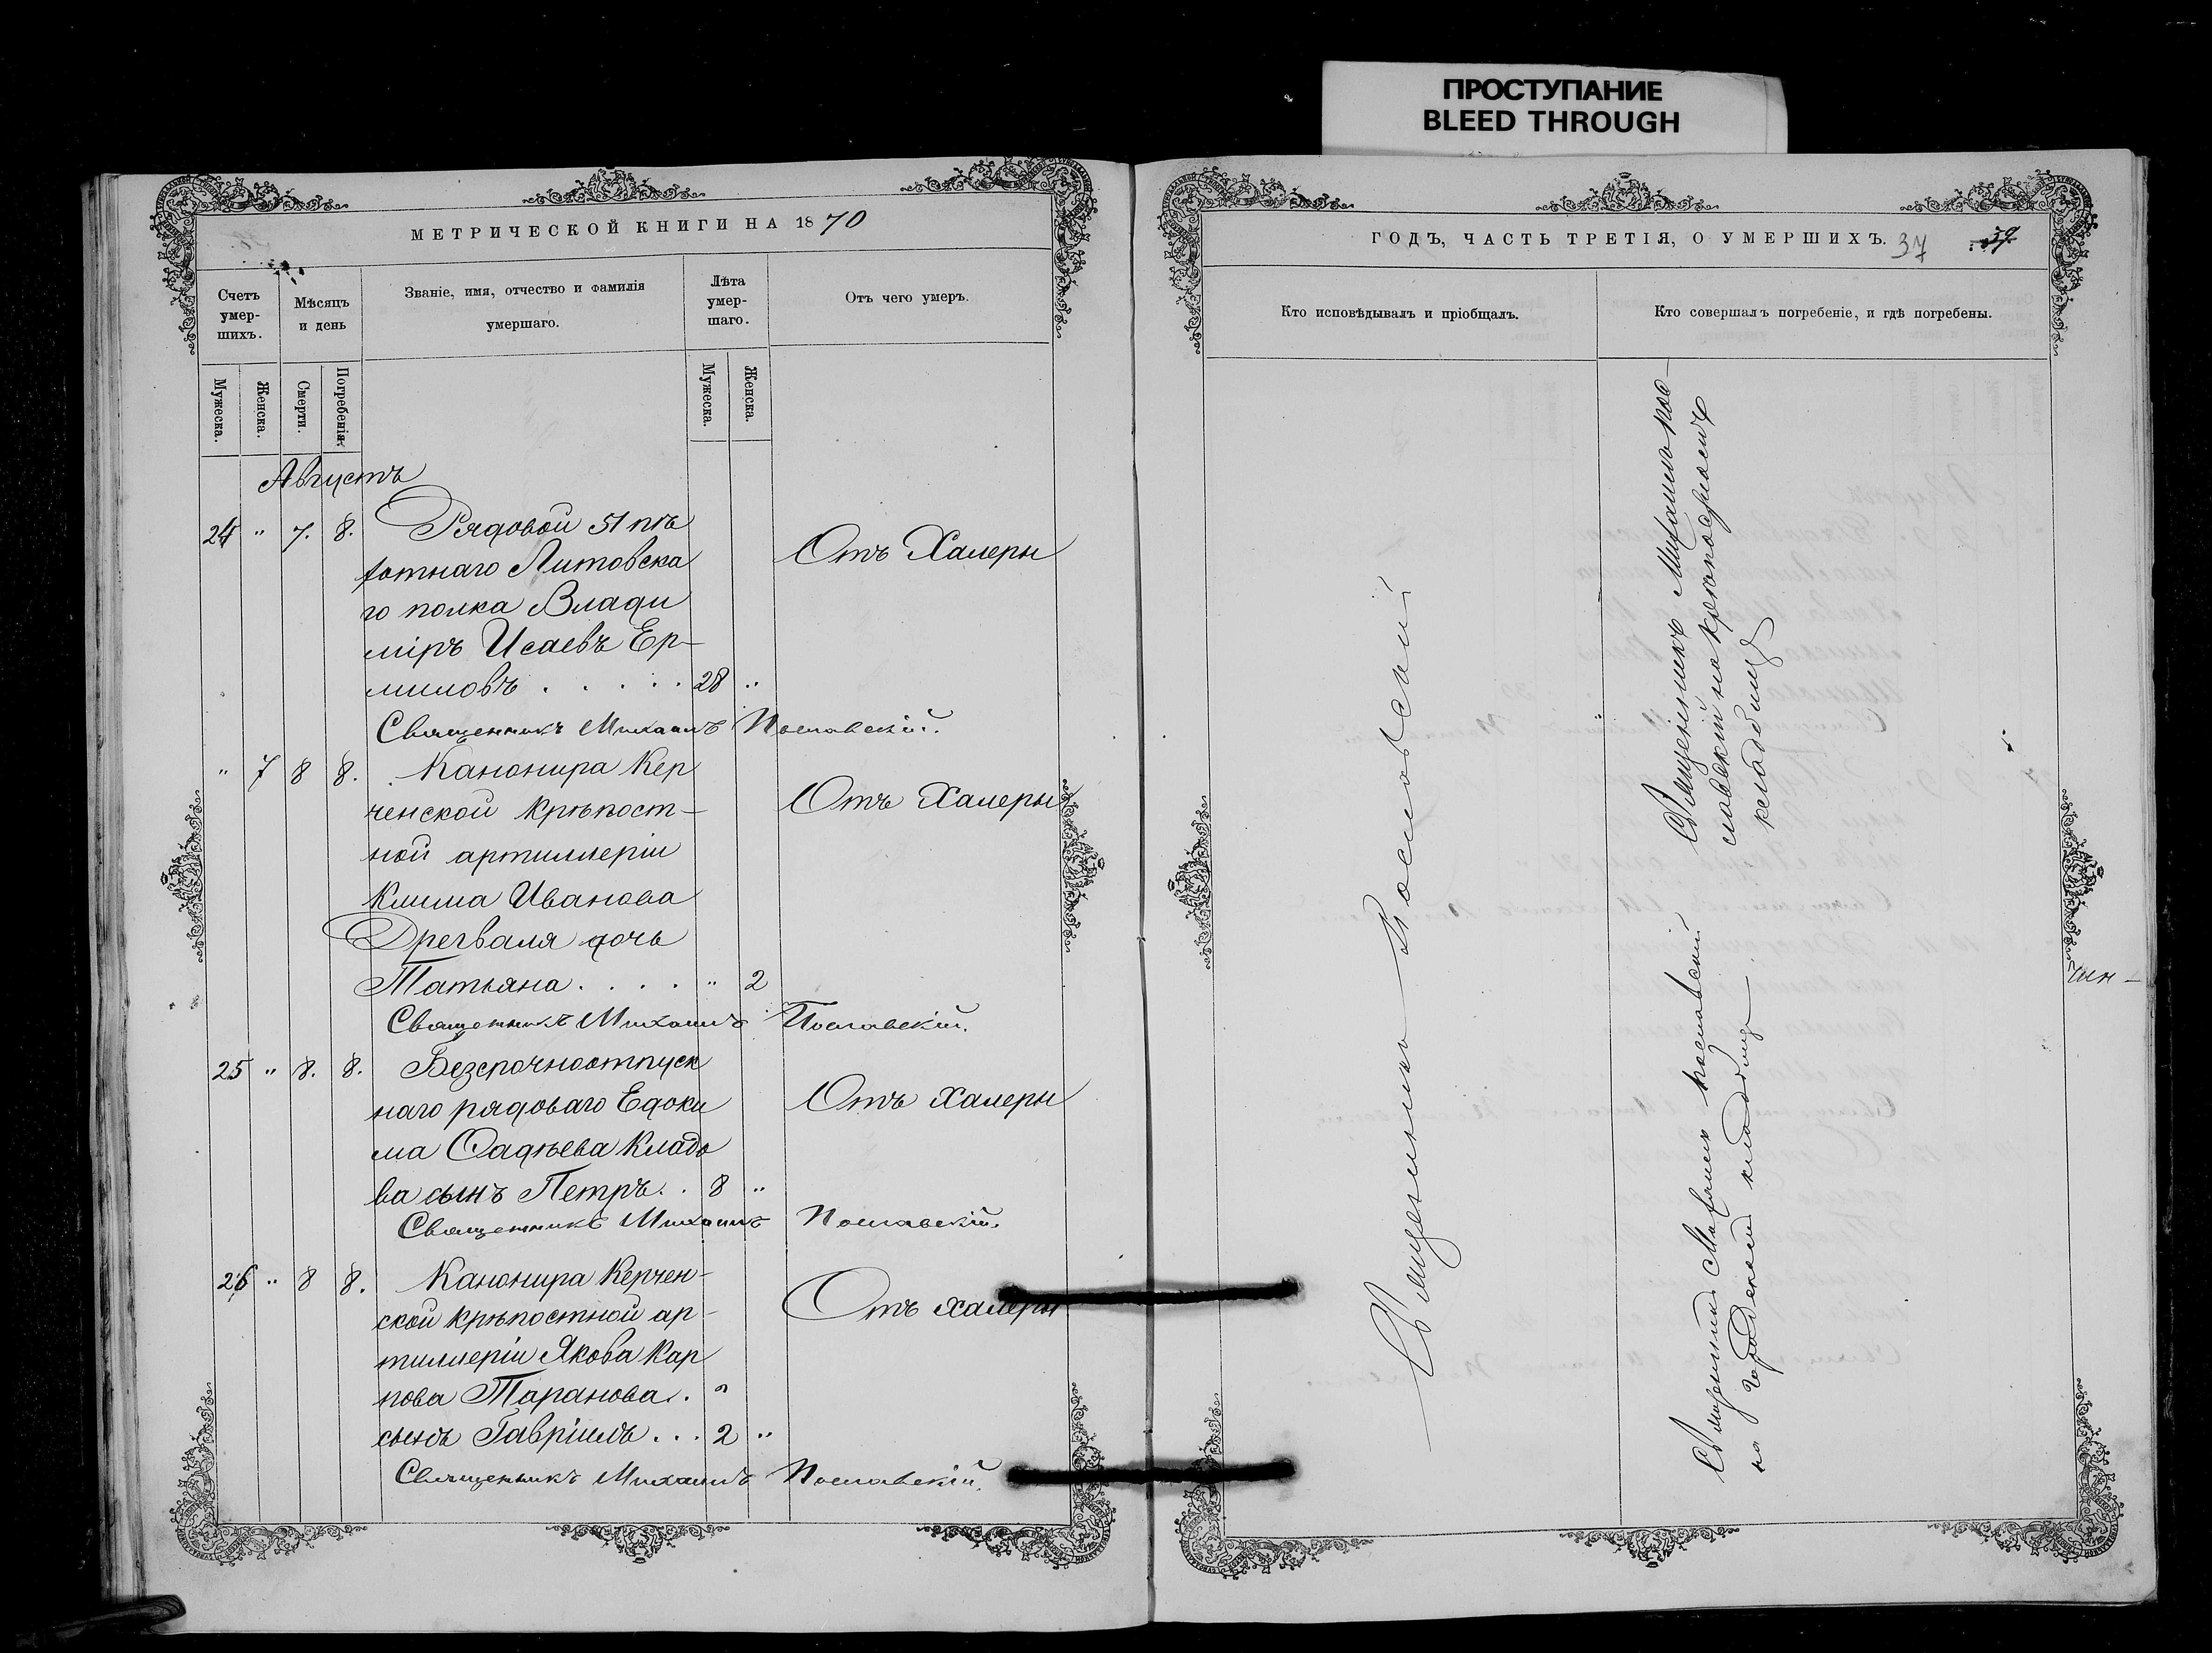 ПРОСТУПАНИЕ
BLEED THROUGH
МЕТРИЧЕСКОЙ КНИГИ НА 1870
Счетъ умер-шихъ.
Мѣсяцъ и день
Званіе, имя, отчество и фамилія умершаго.
Лѣта умер-шаго.
Отъ чего умеръ.
Мужеска.
Женска.
Смерти.
Погребенія.
Мужеска.
Женска.
Августъ
24 " 7. 8. Рядовой 51 пѣ
хотнаго Литовска
го полка Влади
міръ Исаевъ Ер-
миловъ . . . . . 28 "
Отъ Халеры
Священникъ Михаилъ Пославскій.
" 7 8 8. Канонира Кер
ченской крѣпост-
ной артиллеріи
Клима Иванова
Дрегваля дочь
Татьяна . . . . " 2
Отъ Халеры
Священникъ Михаилъ Пославскій.
25 " 8. 8. Безсрочноотпуск
наго рядоваго Едоки
ма Фадѣева Кладо
ва сынъ Петръ. . 8 "
Отъ Халеры
Священникъ Михаилъ Пославскій.
26 " 8 8. Канонира Керчен-
ской крѣпостной ар-
тиллеріи Якова Кар
пова Таранова. "
сынъ Гавріилъ . . . 2 "
Отъ халеры
Священникъ Михаилъ Пославскій.
ГОДЪ, ЧАСТЬ ТРЕТІЯ, О УМЕРШИХЪ. 37
Кто исповѣдывалъ и пріобщалъ.
Кто совершалъ погребеніе, и гдѣ погребены.
Священникъ Пославскій
Священникъ Михаилъ Пос-
лавскій на крѣпостномъ
кладбищѣ
Священникъ Михаилъ Пославский
на городскомъ кладбищѣ